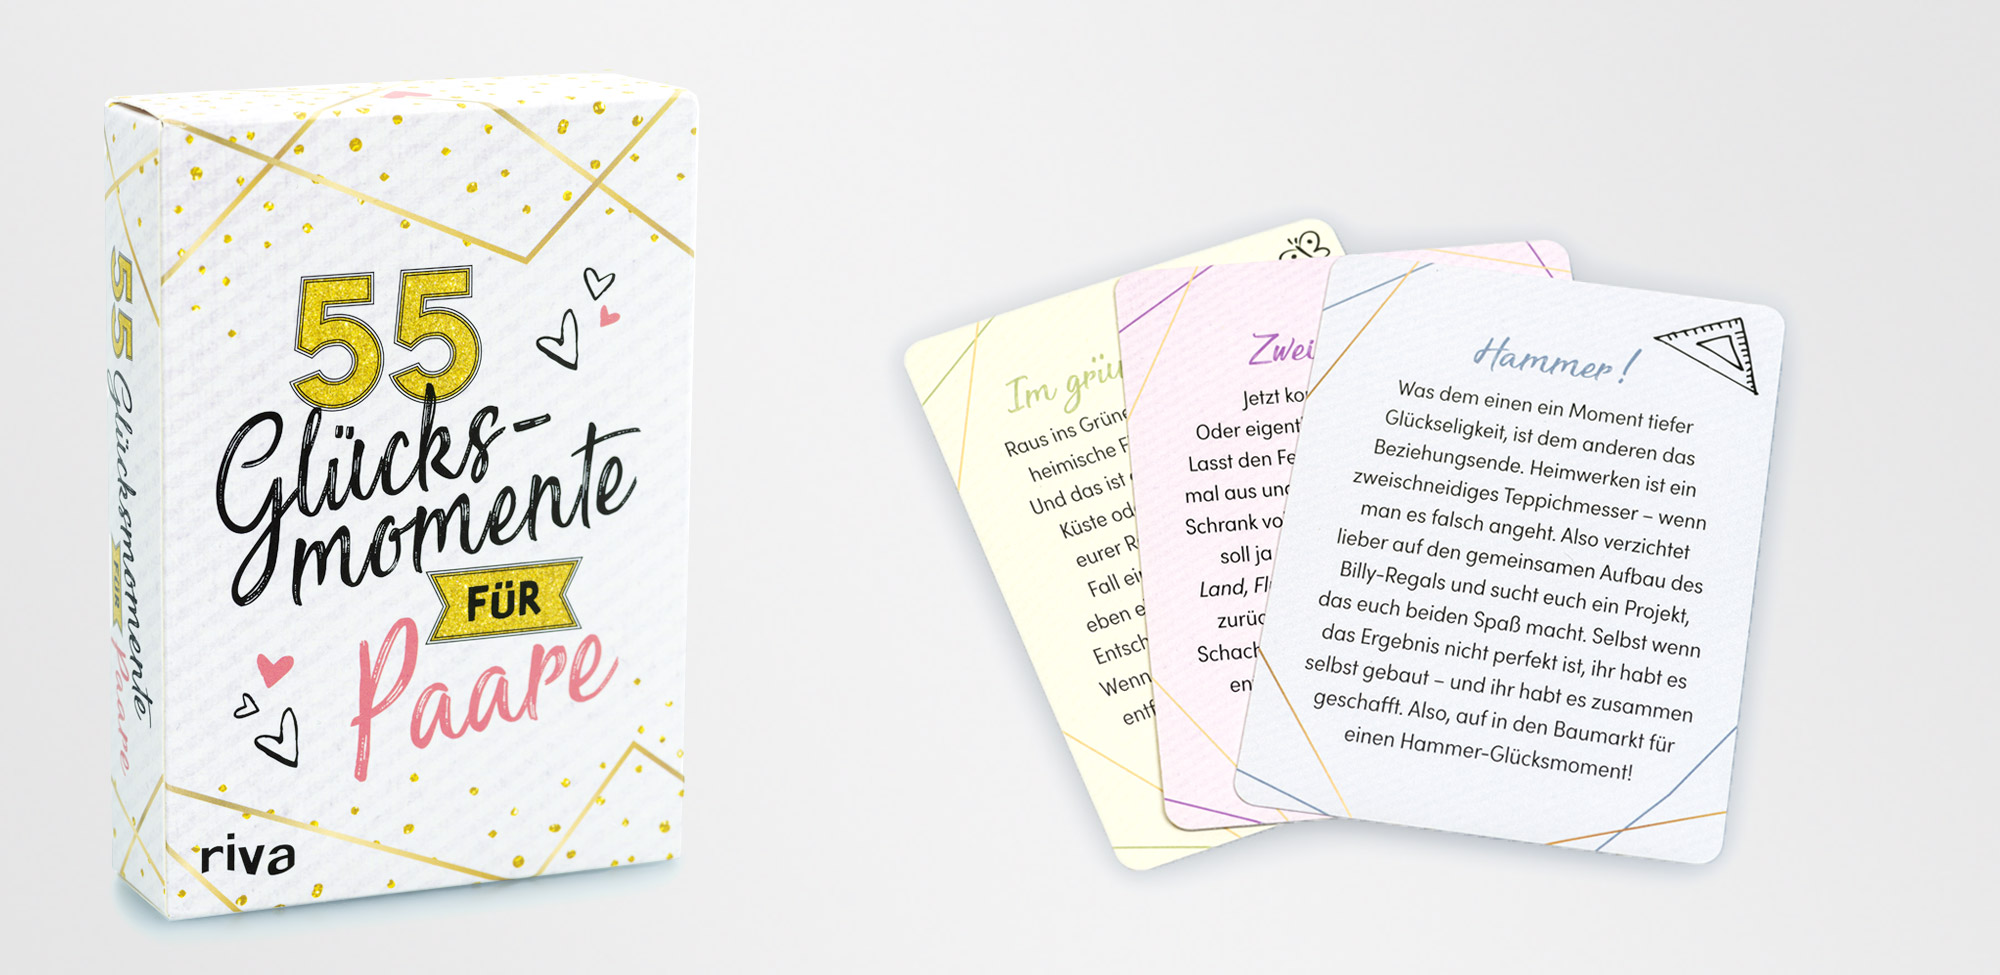 55
Glücks-
momente
FÜR
Paare
riva
55 Glücksmomente FÜR Paare
Im
Raus ins Grüne
heimische
Und das ist
Küste
eurer
Fall
eben
Wenn
Zwei
Jetzt
Oder
Lasst den
mal aus
Schrank
soll ja
Land,
Hammer!
Was dem einen ein Moment tiefer
Glückseligkeit, ist dem anderen das
Beziehungsende. Heimwerken ist ein
zweischneidiges Teppichmesser – wenn
man es falsch angeht. Also verzichtet
lieber auf den gemeinsamen Aufbau des
Billy-Regals und sucht euch ein Projekt,
das euch beiden Spaß macht. Selbst wenn
das Ergebnis nicht perfekt ist, ihr habt es
selbst gebaut – und ihr habt es zusammen
geschafft. Also, auf in den Baumarkt für
einen Hammer-Glücksmoment!